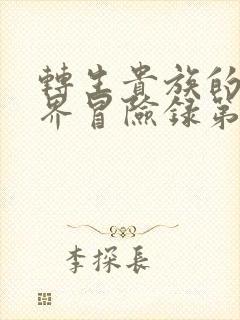 轉生貴族的
界冒險録第
李探長